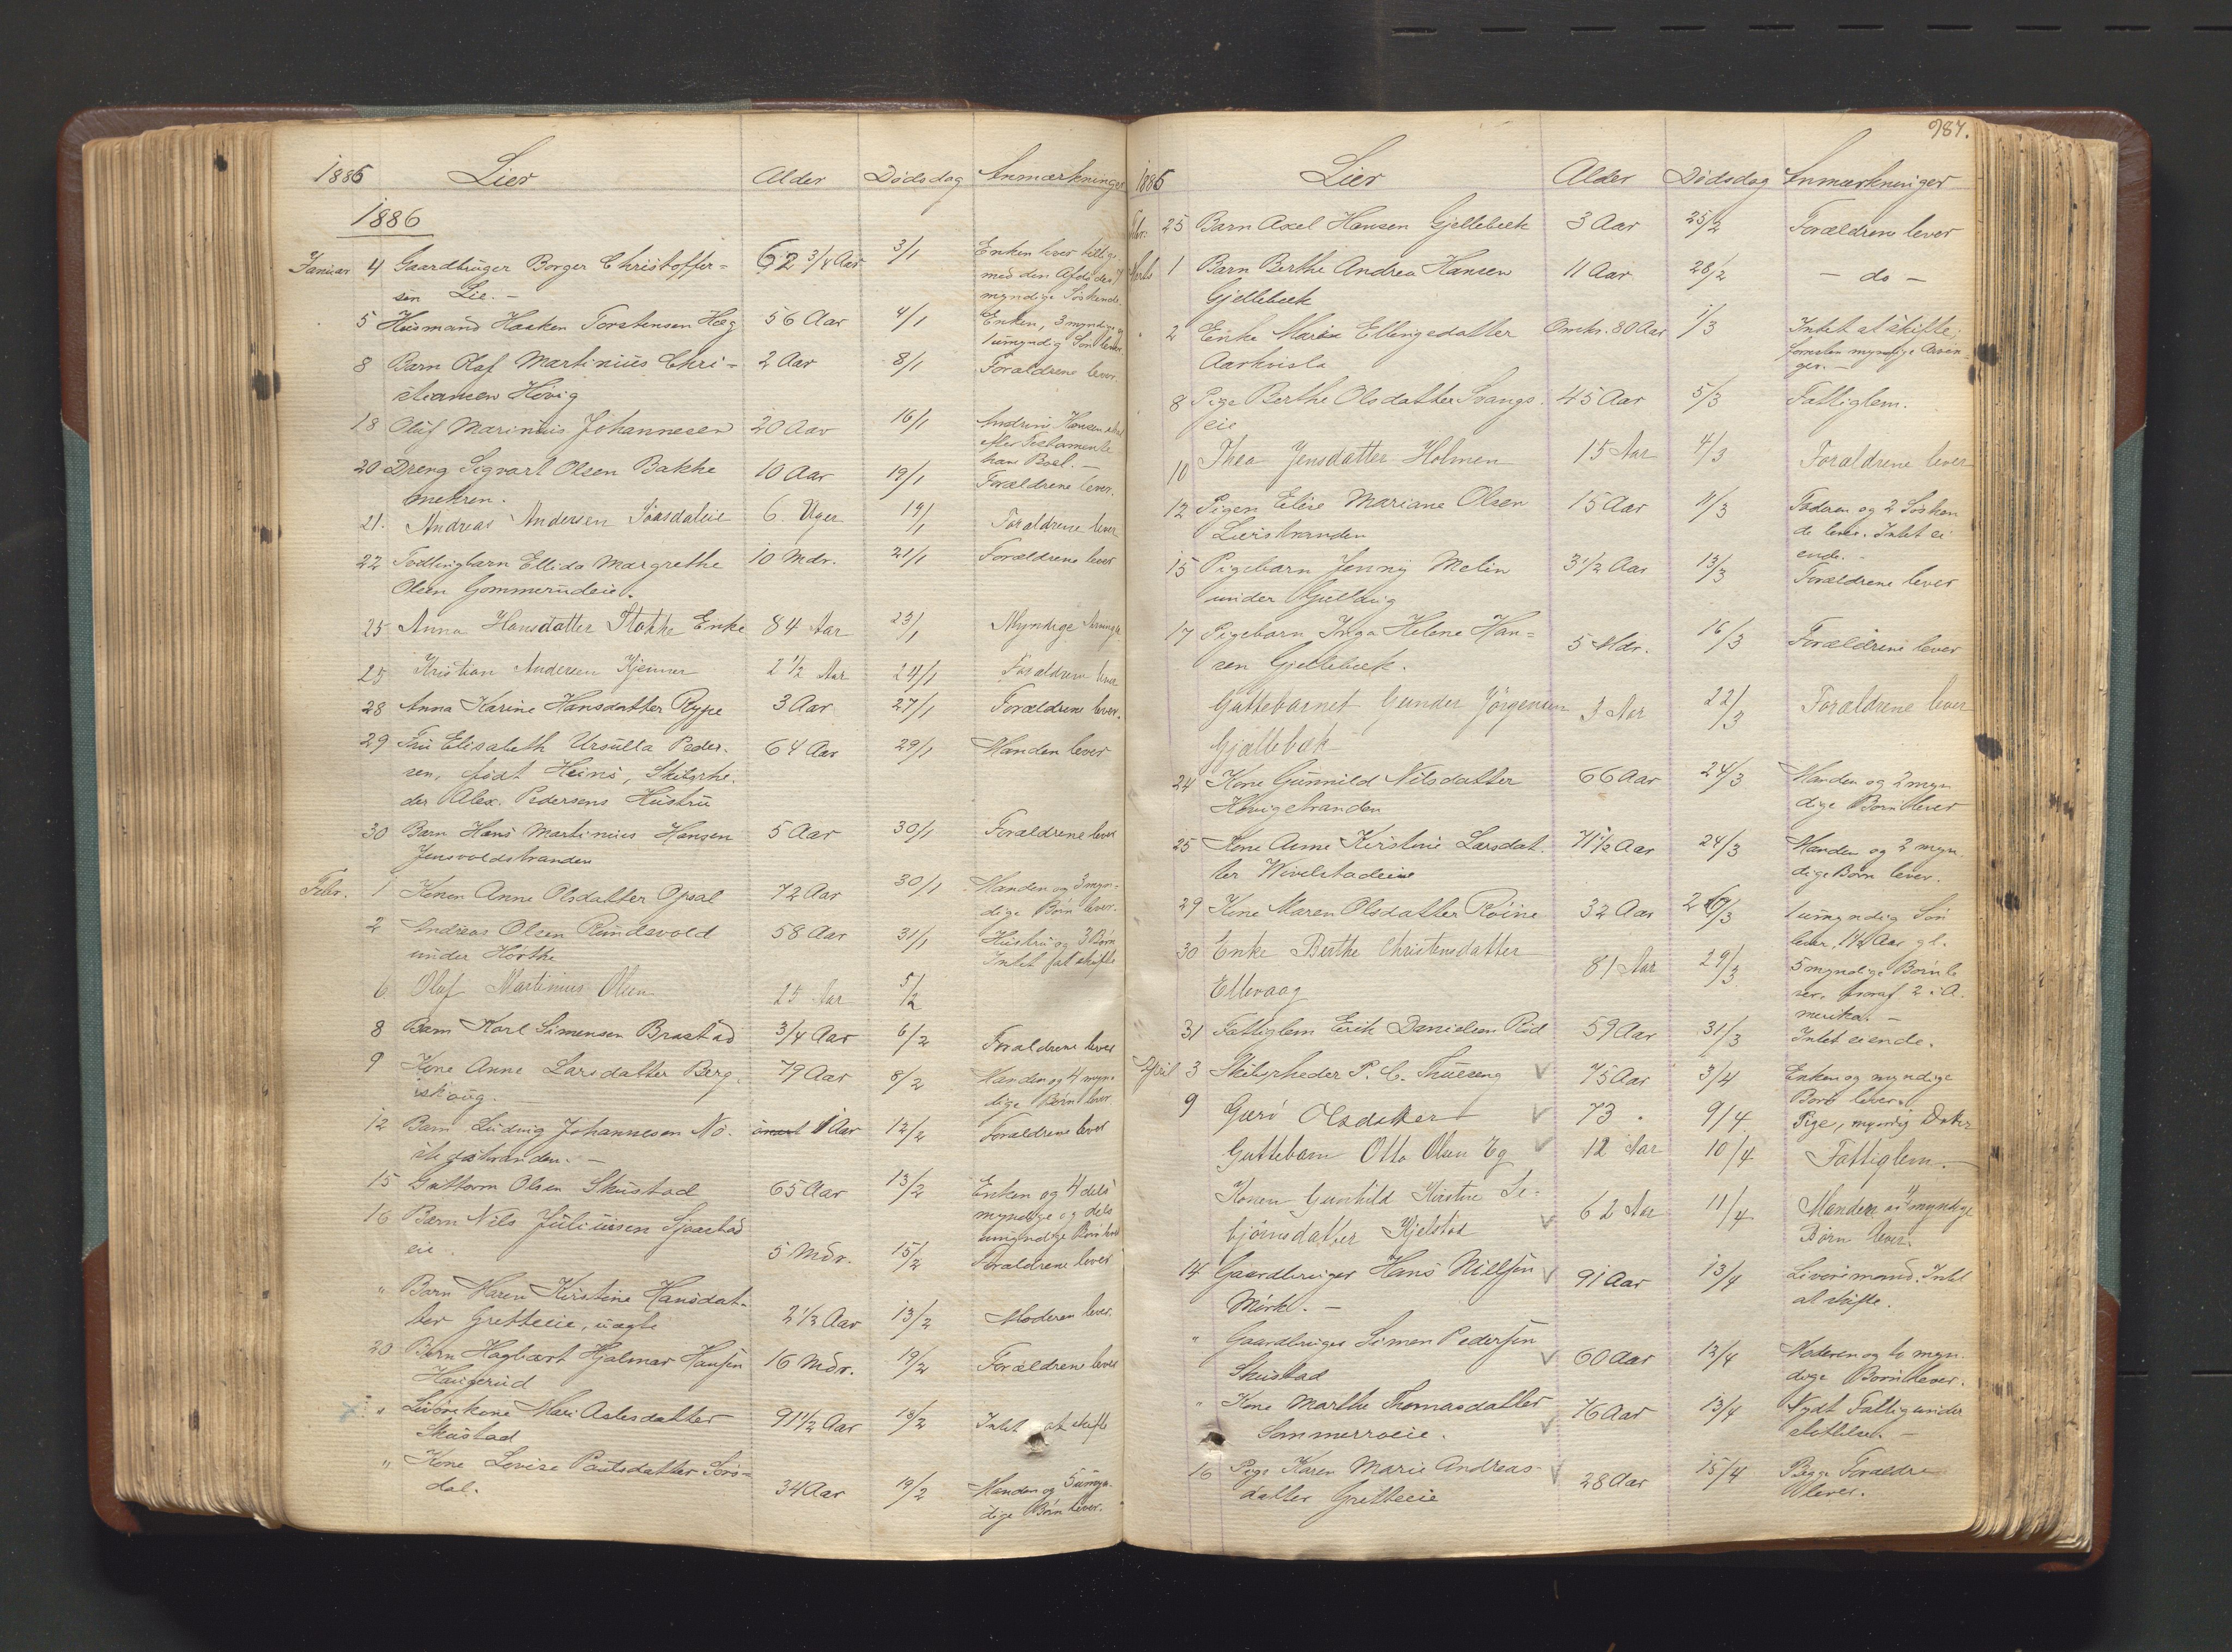 1886 Lier Alder Dödsdag Anmærkninger
1886
Januar 4 Gaardbruger Borger Christoffer= 62 3/4 Aar 3/1 Enken lever tillige
sen Lie. – med den Afdödes
myndige Söskende.
5 Husmand Haaken Torstensen Hæg 56 Aar 4/1 Enken, 3 myndige og
1 umyndig Sön lever
8 Barn Olaf Martinius Chri= 2 Aar 8/1 Forældrene lever.
stiansen Hövig
18 Oluf Marinius Johannesen 20 Aar 16/1 Andrine Hansen
efter Testamente
hans Boel. –
20 Dreng Sigvart Olsen Bakke 10 Aar 19/1 Forældrene lever.
mehren.
21. Andreas Andersen 6 Uger 19/1 Forældrene lever
22 Tvillingbarn Ellida Margrethe 10 Mdr. 21/1 Forældrene lever
Olsen Gommerudeie.
25 Anna Hansdatter Stokke Enke 84 Aar 23/1 Myndige Arvinger
25 Kristian Andersen Kjenner 2 1/2 Aar 24/1 Forældrene lever
28 Anna Karine Hansdatter Rype 3 Aar 27/1 Forældrene lever.
29 Fru Elisabeth Ursulla Peder- 64 Aar 29/1 Manden lever
sen, födt Heins, Skibsrhe-
der Alex. Pedersens Hustru
30 Barn Hans Martinius Hansen 5 Aar 30/1 Forældrene lever
Jensvoldstranden
Febr. 1 Konen Anne Olsdatter Opsal 72 Aar 30/1 Manden og 3 myn=
dige Börn lever.
2 Andreas Olsen Rundsvold 58 Aar 31/1 Hustru og 3 Börn
under Hörthe Intet at skifte
6 Olaf Martinius Olsen 25 Aar 5/2
8 Barn Karl Simensen Brastad 3/4 Aar 6/2 Forældrene lever
9 Kone Anne Larsdatter Berg- 79 Aar 8/2 Manden og 4 myn-
skoug. – dige Börn lever
12 Barn Ludvig Johannesen Nö- 1 Aar 12/2 Forældrene lever
stegstranden. –
15 Guttorm Olsen Skustad 65 Aar 13/2 Enken og 4 dels
myndige og dels
umyndige Börn lever
16 Barn Nils Juliussen Sjaastad
eie. 5 Mdr. 15/2 Forældrene lever
" Barn Maren Kirstine Hansdat-
ter Gretteeie, uægte 2 1/2 Aar 13/2 Moderen lever.
20 Barn Hagbart Hjalmar Hansen 16 Mdr. 19/2 Forældrene lever
Haugerud
" Livörekone Mari Aslesdatter 91 1/2 Aar 18/2 Intet at skifte
Skustad
" Kone Lovise Paulsdatter Sörs=
dal. 34 Aar 19/2 Manden og 5 umyn-
dige Börn lever.
987.
1886 Lier Alder Dödsdag Anmærkninger
Febr. 25 Barn Axel Hansen Gjellebæk 3 Aar 25/2 Forældrene lever
Marts 1 Barn Berthe Andrea Hansen 11 Aar 28/2 – do –
Gjellebæk
2 Enke Marie Ellingsdatter Omkr. 80 Aar 1/3 Intet at skifte,
Aarkvisla forresten myndige Arvin-
ger. –
8 Pige Berthe Olsdatter Svangs- 45 Aar 5/3 Fattiglem.
eie
10 Thea Jensdatter Holmen 15 Aar 4/3 Forældrene lever
12 Pigen Elise Mariane Olsen 15 Aar 11/3 Faderen og 2 Sösken
Lierstranden de lever. Intet ei
ende. –
15 Pigebarn Jenny Melin 3 1/2 Aar 13/3 Forældrene lever
under Gullaug
17 Pigebarn Inga Helene Han= 5 Mdr. 16/3 Forældrene lever
sen Gjellebæk.
Guttebarnet Gunder Jörgensen 3 Aar 22/3 Forældrene lever
Gjellebæk
24 Kone Gunnild Nilsdatter 66 Aar 24/3 Manden og 2 myn
Hövigstranden dige Börn lever
25 Kone Anne Kirstine Larsdat- 71 1/2 Aar 24/3 Manden og 2 myn
ter Wivelstadeie dige Börn lever.
29 Kone Maren Olsdatter Röine 32 Aar 26/3 1 umyndig Sön
lever, 14 Aar gl.
30 Enke Berthe Christensdatter 81 Aar 29/3 5 myndige Börn le
Ellevaag ver, hvoraf 2 i A.
merika. –
31 Fattiglem Erik Danielsen Röd 59 Aar 31/3 Intet eiende.
April 3 Skibsrheder P. C. Thuesen 75 Aar 3/4 Enken og myndige
Börn lever.
9 Guro Olsdatter 73 " 9/4 Pige, myndig Datter
Guttebarn Otto Olsen Eg 12 Aar 10/4 Fattiglem.
Konen Gunhild Kirstine Se- 62 Aar 11/4 Manden og 4 myndige
björnsdatter Kjelstad Börn lever.
14 Gaardbruger Hans Nilssen 91 Aar 13/4 Livöremand. Intet
Mörk. – at skifte.
" Gaardbruger Simen Pedersen 60 Aar 12/4 Moderen og to myn
Skustad dige Börn lever.
" Kone Marthe Thomasdatter 76 Aar 13/4 Nydt Fattigunder
Sommerroeie. stöttelse. –
16 Pige Karen Marie Andreas- 28 Aar 15/4 Begge Forældre
datter Gretteeie lever.